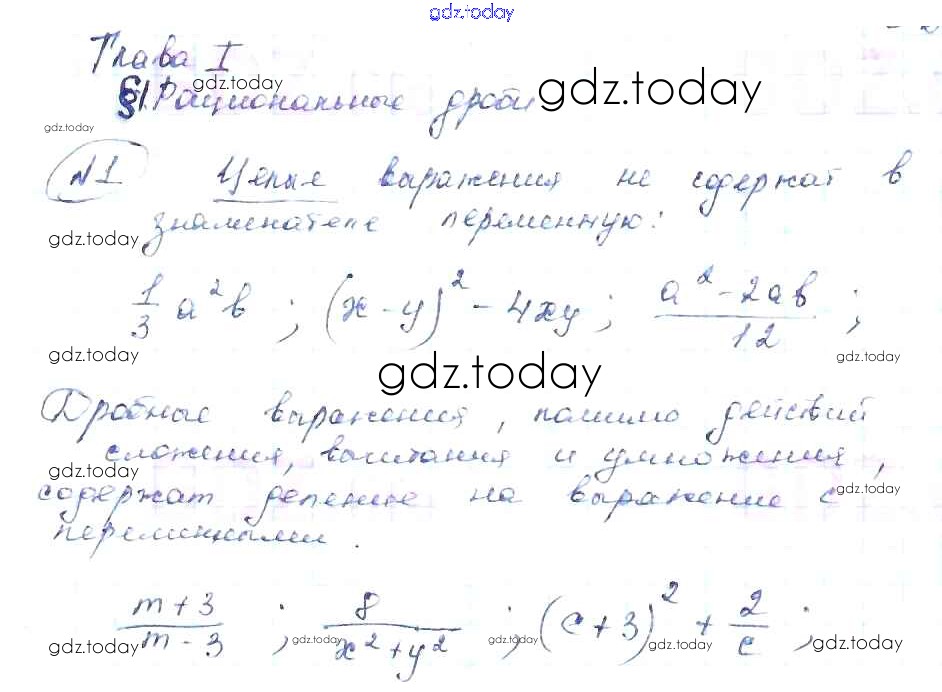 gdz.today
Глава I
gdz.today
§1. Рациональные дроби
gdz.today
gdz.today
№1 Целые выражения не содержат в
знаменателе переменную:
gdz.today
1/3 a²b ; (x - y)² - 4xy ; (a² - 2ab)/12 ;
gdz.today
gdz.today
gdz.today
Дробные выражения, помимо действий
сложения, вычитания и умножения,
gdz.today
содержат деление на выражение с
gdz.today
переменными.
(m + 3)/(m - 3) ; 8/(x² + y²) ; (c + 3)² + 2/c ;
gdz.today
gdz.today
gdz.today
gdz.today
gdz.today